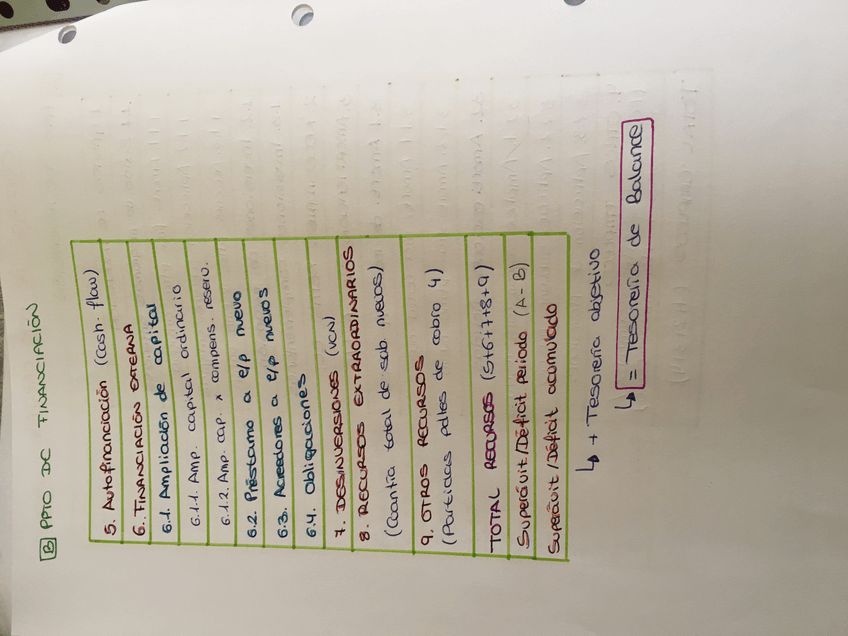 B PPTO DE FINANCIACIÓN
5. Autofinanciación (cash-flow)
6. FINANCIACIÓN EXTERNA
6.1. Ampliación de capital
6.1.1. Amp. capital ordinario
6.1.2. Amp. cap. x compens. reserv.
6.2. Préstamo a e/p nuevo
6.3. Acreedores a e/p nuevos
6.4. Obligaciones
7. DESINVERSIONES (VCN)
8. RECURSOS EXTRAORDINARIOS
(Cuantía total de sub. nuevos)
9. OTROS RECURSOS
(Partidas pdtes de cobro 4)
TOTAL RECURSOS (5+6+7+8+9)
Superávit/Déficit periodo (A-B)
Superávit/Déficit acumulado
↳ + Tesorería objetivo
↳ = Tesorería de Balance